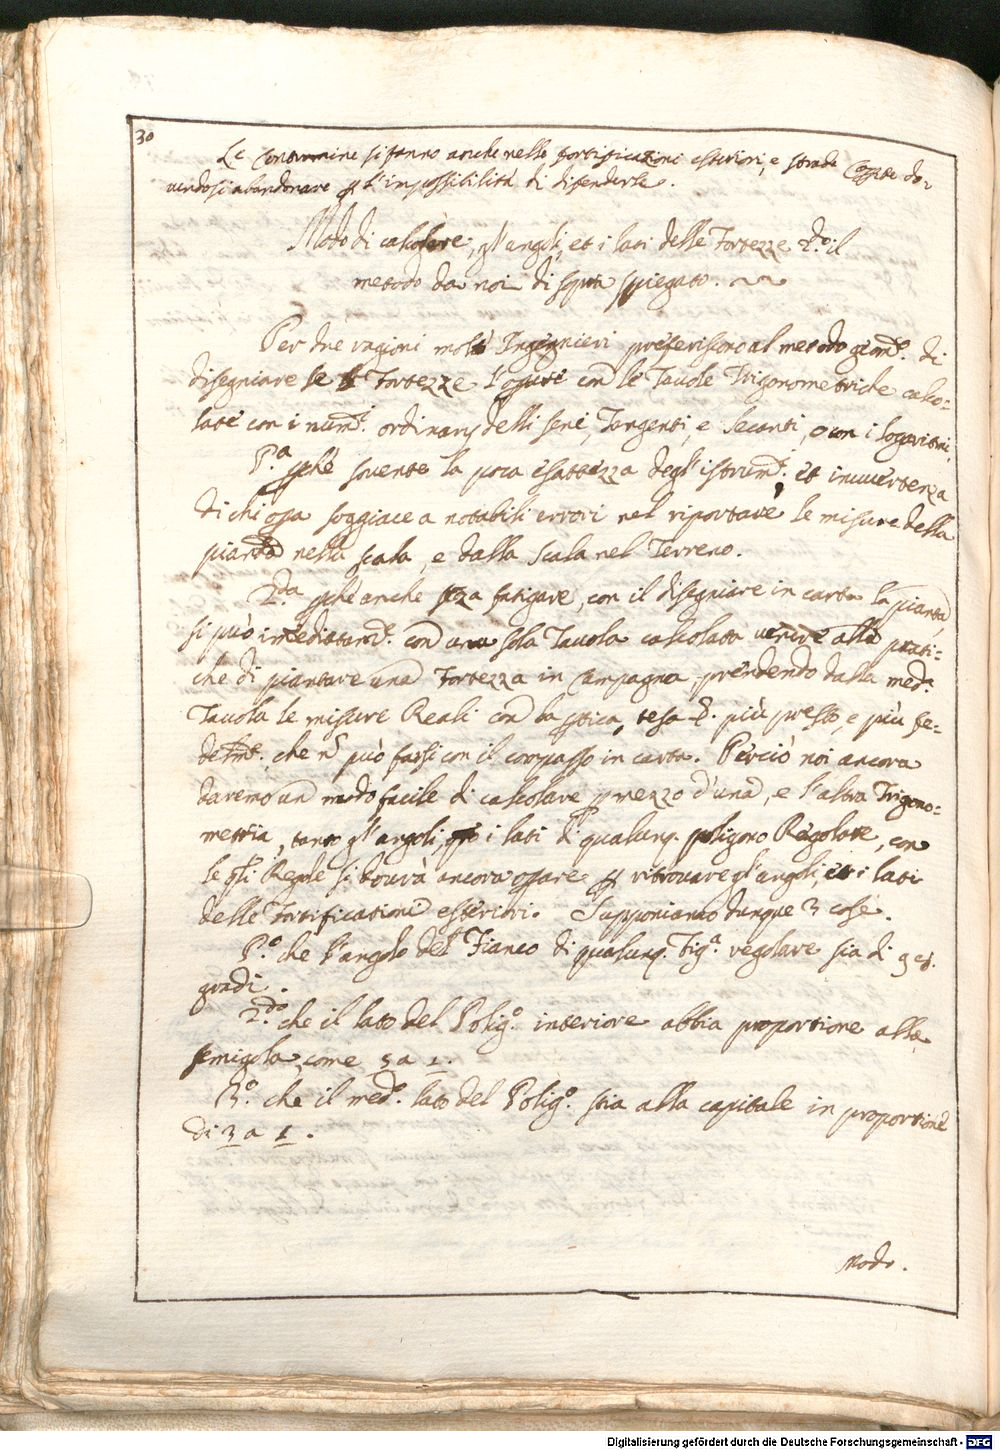 30
Le Contramine si fanno anche nelle fortificazioni esteriori, e strade Coperte do-
vendosi abandonare p l'impossibilità di difenderle.
Modo di calcolare, gl'angoli, et i lati delle Fortezze 2.do il
metodo da noi di sopra spiegato.
Per due ragioni molti Ingegnieri preferiscono al metodo geom.o di
disegniare le Fortezze l'opure con le Tavole Trigonometriche calco-
late con i num.i ordinarij delli seni, Tangenti, e Secanti, o con i logaritmi.
P.a pche sovente la poca esattezza degl'istrum.i, et inavvertenza
di chi opra soggiace a notabili errori nel riportare le misure della
pianta nella scala, e dalla Scala nel Terreno.
2.da pche anche sza fatigare, con il disegniare in carta la pianta,
si può imediatam.e con una sola Tavola calcolata venire alla prati-
che di piantare una Fortezza in campagna prendendo dalla med.a
Tavola le misure Reali con la ptica, tesa &. più presto, e più fe-
delm.e che n può farsi con il compasso in carta. Perciò noi ancora
daremo un modo facile di calcolare p mezzo d'una, e l'altra Trigono-
metria, tanto gl'angoli, qto i lati di qualunq. poligono Regolare, con
le qli Regole si dovrà ancora oprare p ritrovare gl'angoli, et i lati
delle Fortificationi esteriori. Supponiamo dunque 3 cose.
P.o che l'angolo del Fianco di qualunq. Fig.a regolare sia di 90.
gradi.
2.do che il lato del Polig.o interiore abbia proportione alla
semigola, come 5 a 1.
3.o che il med.o lato del Polig.o stia alla capitale in proportione
di 3 a 1.
Modo.
Digitalisierung gefördert durch die Deutsche Forschungsgemeinschaft - DFG